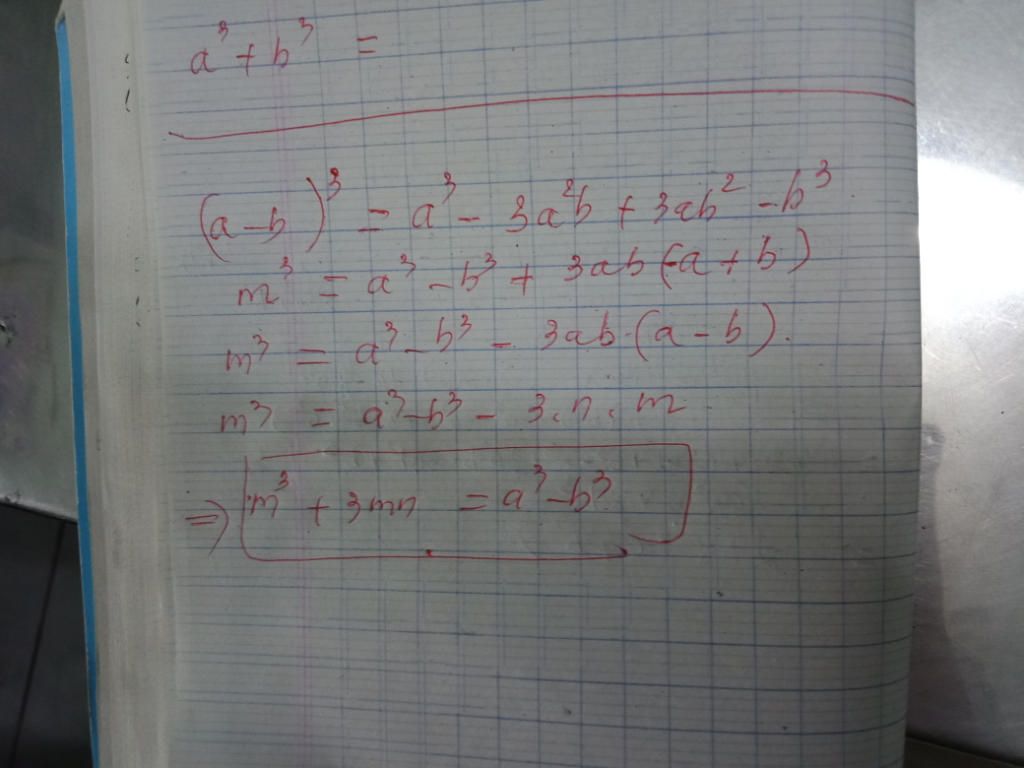 a³ + b³ =
(a - b)³ = a³ - 3a²b + 3ab² - b³
m³ = a³ - b³ + 3ab(-a + b)
m³ = a³ - b³ - 3ab·(a - b).
m³ = a³ - b³ - 3.n.m
⇒ m³ + 3mn = a³ - b³